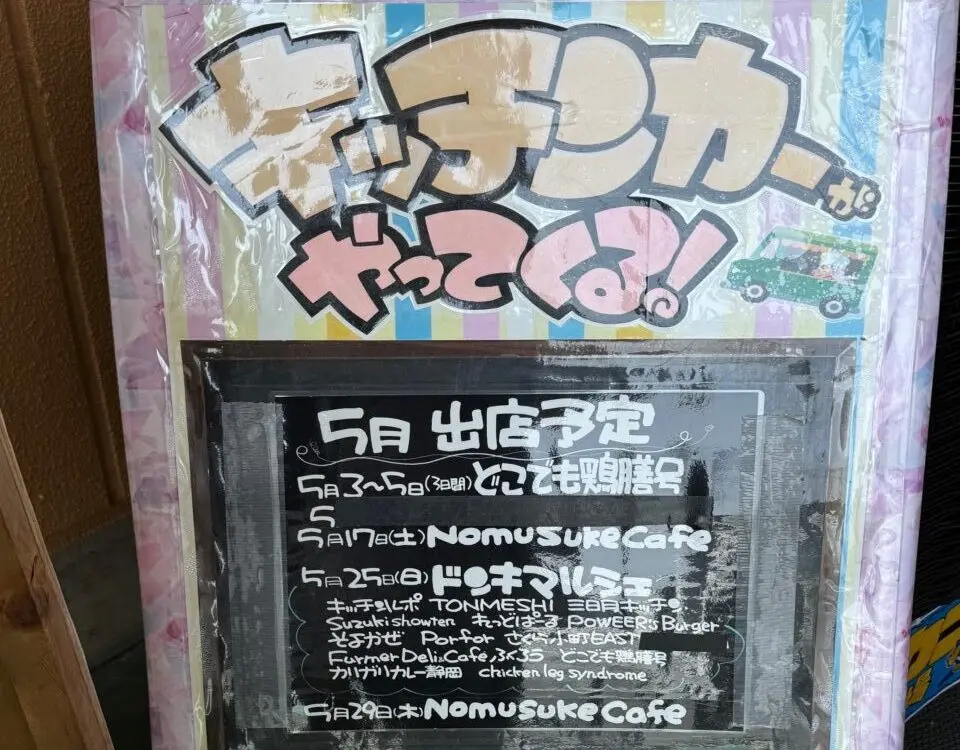 キッチンカーが
やってくる!
5月 出店予定
5月3〜5日(3日間)どこでも鶏膳号
5
5月17日(土)Nomusuke Cafe
5月25日(日)ドンキマルシェ
キッチンルポ TONMESHI 三日月キッチン
Suzuki showten れっどぱーる POWEER's Burger
そよかぜ Porfor さくら小町EAST
Furmer Deli&Cafe ふくろう どこでも鶏膳号
カリガリカレー静岡 chicken leg syndrome
5月29日(木)Nomusuke Cafe